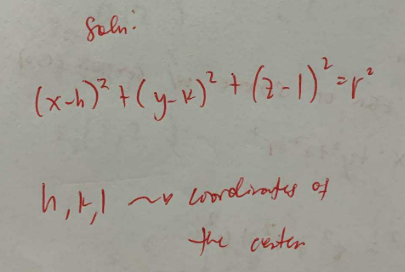 Soln:
(x-h)² + (y-k)² + (z-l)² = r²
h, k, l ~> coordinates of
the center